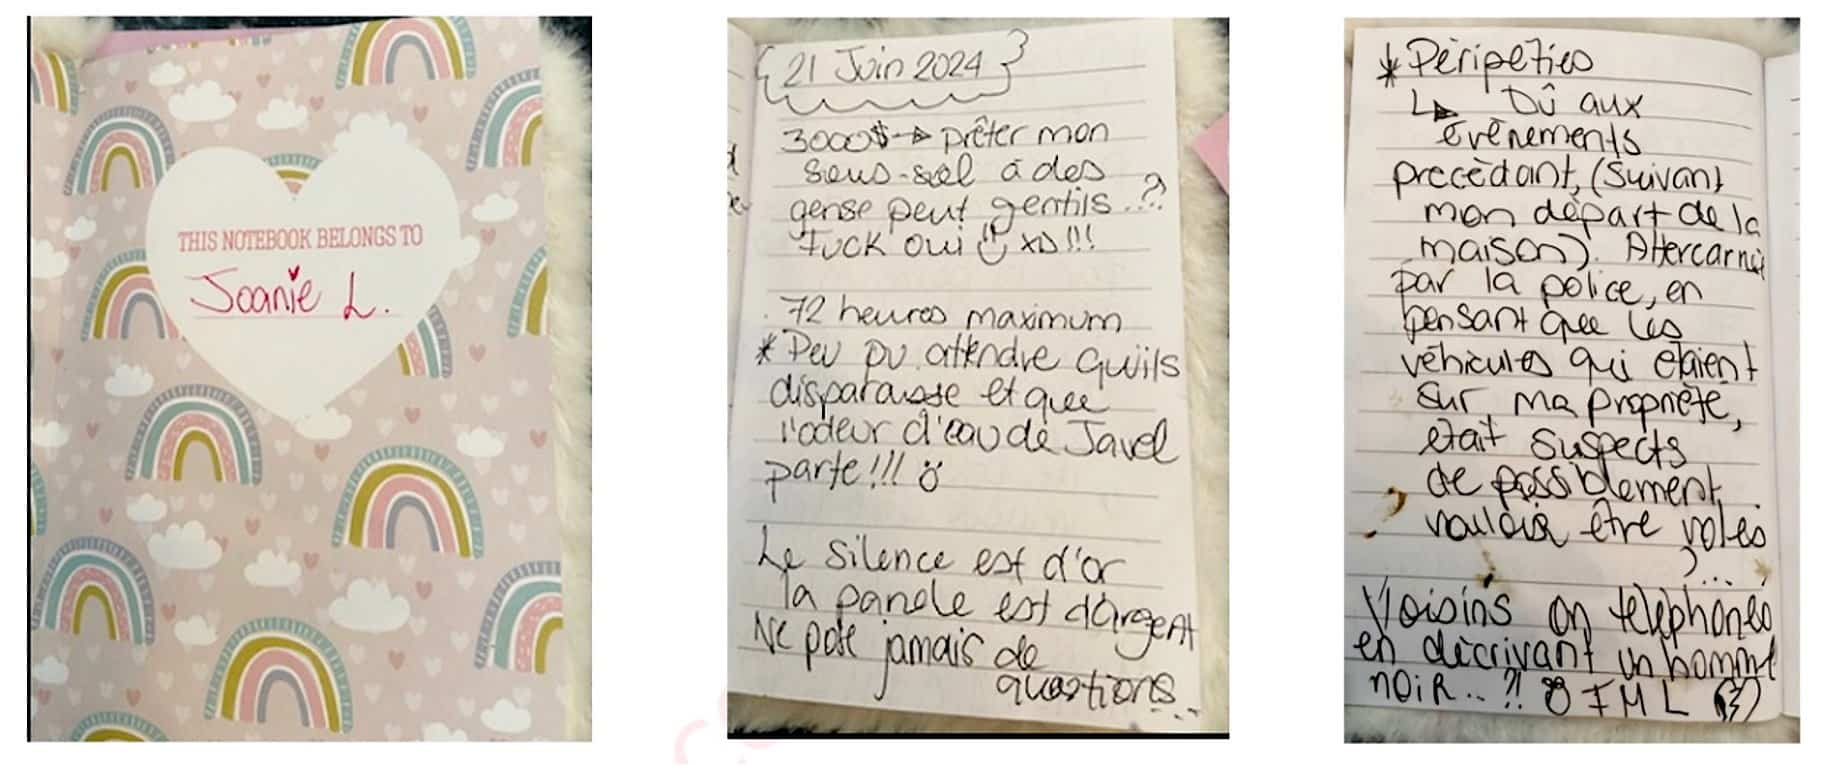 THIS NOTEBOOK BELONGS TO
Joanie L.
21 Juin 2024
3000$ → prêter mon
sous-sol à des
gense peut gentils...?
Fuck oui XD!!!
72 heures maximum
* Peu pu attendre qu'ils
disparausse et que
l'odeur d'eau de Javel
parte!!!
Le silence est d'or
la parole est d'argent
Ne pose jamais de
questions...
* Péripéties
↳ Dû aux
évènements
precèdant, (suivant
mon départ de la
maison). Altercarné
par la police, en
pensant que les
véhicules qui etaient
sur ma propriète,
etait suspects
de possiblement
vouloir être volés
?...
Voisins on telephonés
en dècrivant un homme
noir..?! FML